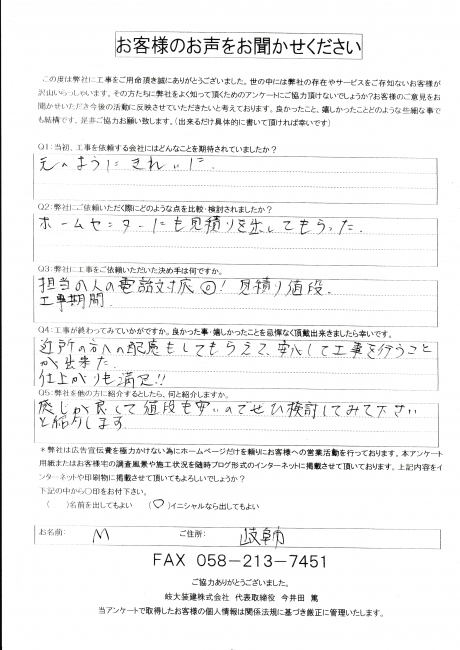 お客様のお声をお聞かせください
この度は弊社に工事をご用命頂き誠にありがとうございました。世の中には弊社の存在やサービスをご存知ないお客様が
沢山いらっしゃいます。その方たちに弊社をよく知って頂くためのアンケートにご協力頂けないでしょうか?お客様のご意見をお
聞かせいただき今後の活動に反映させていただきたいと考えております。良かったこと、嬉しかったことどのような些細な事で
も結構です。是非ご協力お願い致します。(出来るだけ具体的に書いて頂ければ幸いです)
Q1:当初、工事を依頼する会社にはどんなことを期待されていましたか?
元のようにきれいに.
Q2:弊社にご依頼いただく際にどのような点を比較・検討されましたか?
ホームセンターにも見積りを出してもらった.
Q3:弊社に工事をご依頼いただいた決め手は何ですか。
担当の人の電話対応◎! 見積り値段.
工事期間.
Q4:工事が終わってみていかがですか。良かった事・嬉しかったことを忌憚なく頂戴出来ましたら幸いです。
近所の方への配慮もしてもらえて、安心して工事を行うこと
が出来た.
仕上がりも満足!!
Q5:弊社を他の方に紹介するとしたら、何と紹介しますか。
感じが良くて値段も安いのでぜひ検討してみて下さい
と紹介します.
*弊社は広告宣伝費を極力かけない為にホームページだけを頼りにお客様への営業活動を行っております。本アンケート
用紙またはお客様宅の調査風景や施工状況を随時ブログ形式のインターネットに掲載させて頂いております。上記内容をイ
ンターネットや印刷物に掲載させて頂いてもよろしいでしょうか?
下記の中から〇印をお付下さい。
( )名前を出してもよい (○)イニシャルなら出してもよい
お名前: M ご住所: 岐阜市
FAX 058-213-7451
ご協力ありがとうございました。
岐大装建株式会社 代表取締役 今井田 篤
当アンケートで取得したお客様の個人情報は関係法規に基づき厳正に管理いたします。